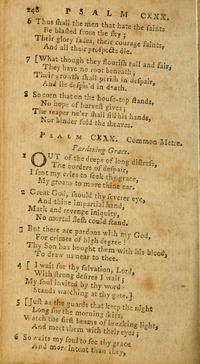 248 PSALM CXXX.
6 Thus shall the men that hate the saints
Be blasted from the sky;
Their glory fades, their courage faints,
And all their projects die.
7 [What though they flourish tall and fair,
They have no root beneath;
Their growth shall perish in despair,
And lie despis'd in death.
8 So corn that on the house-top stands,
No hope of harvest gives;
The reaper ne'er shall fill his hands,
Nor binder fold the sheaves.
PSALM CXXX. Common Metre.
Pardoning Grace.
1 OUT of the deeps of long distress,
The borders of despair,
I sent my cries to seek thy grace,
My groans to move thine ear.
2 Great God, should thy severer eye,
And thine impartial hand,
Mark and revenge iniquity,
No mortal flesh could stand.
3 But there are pardons with my God,
For crimes of high degree!
Thy Son has bought them with his blood,
To draw us near to thee.
4 [I wait for thy salvation, Lord,
With strong desires I wait;
My soul invited by thy word
Stands watching at thy gate.]
5 [Just as the guards that keep the night
Long for the morning skies,
Watch the first beams of breaking light,
And meet them with their eyes;
6 So waits my soul to see thy grace
And more intent than they,